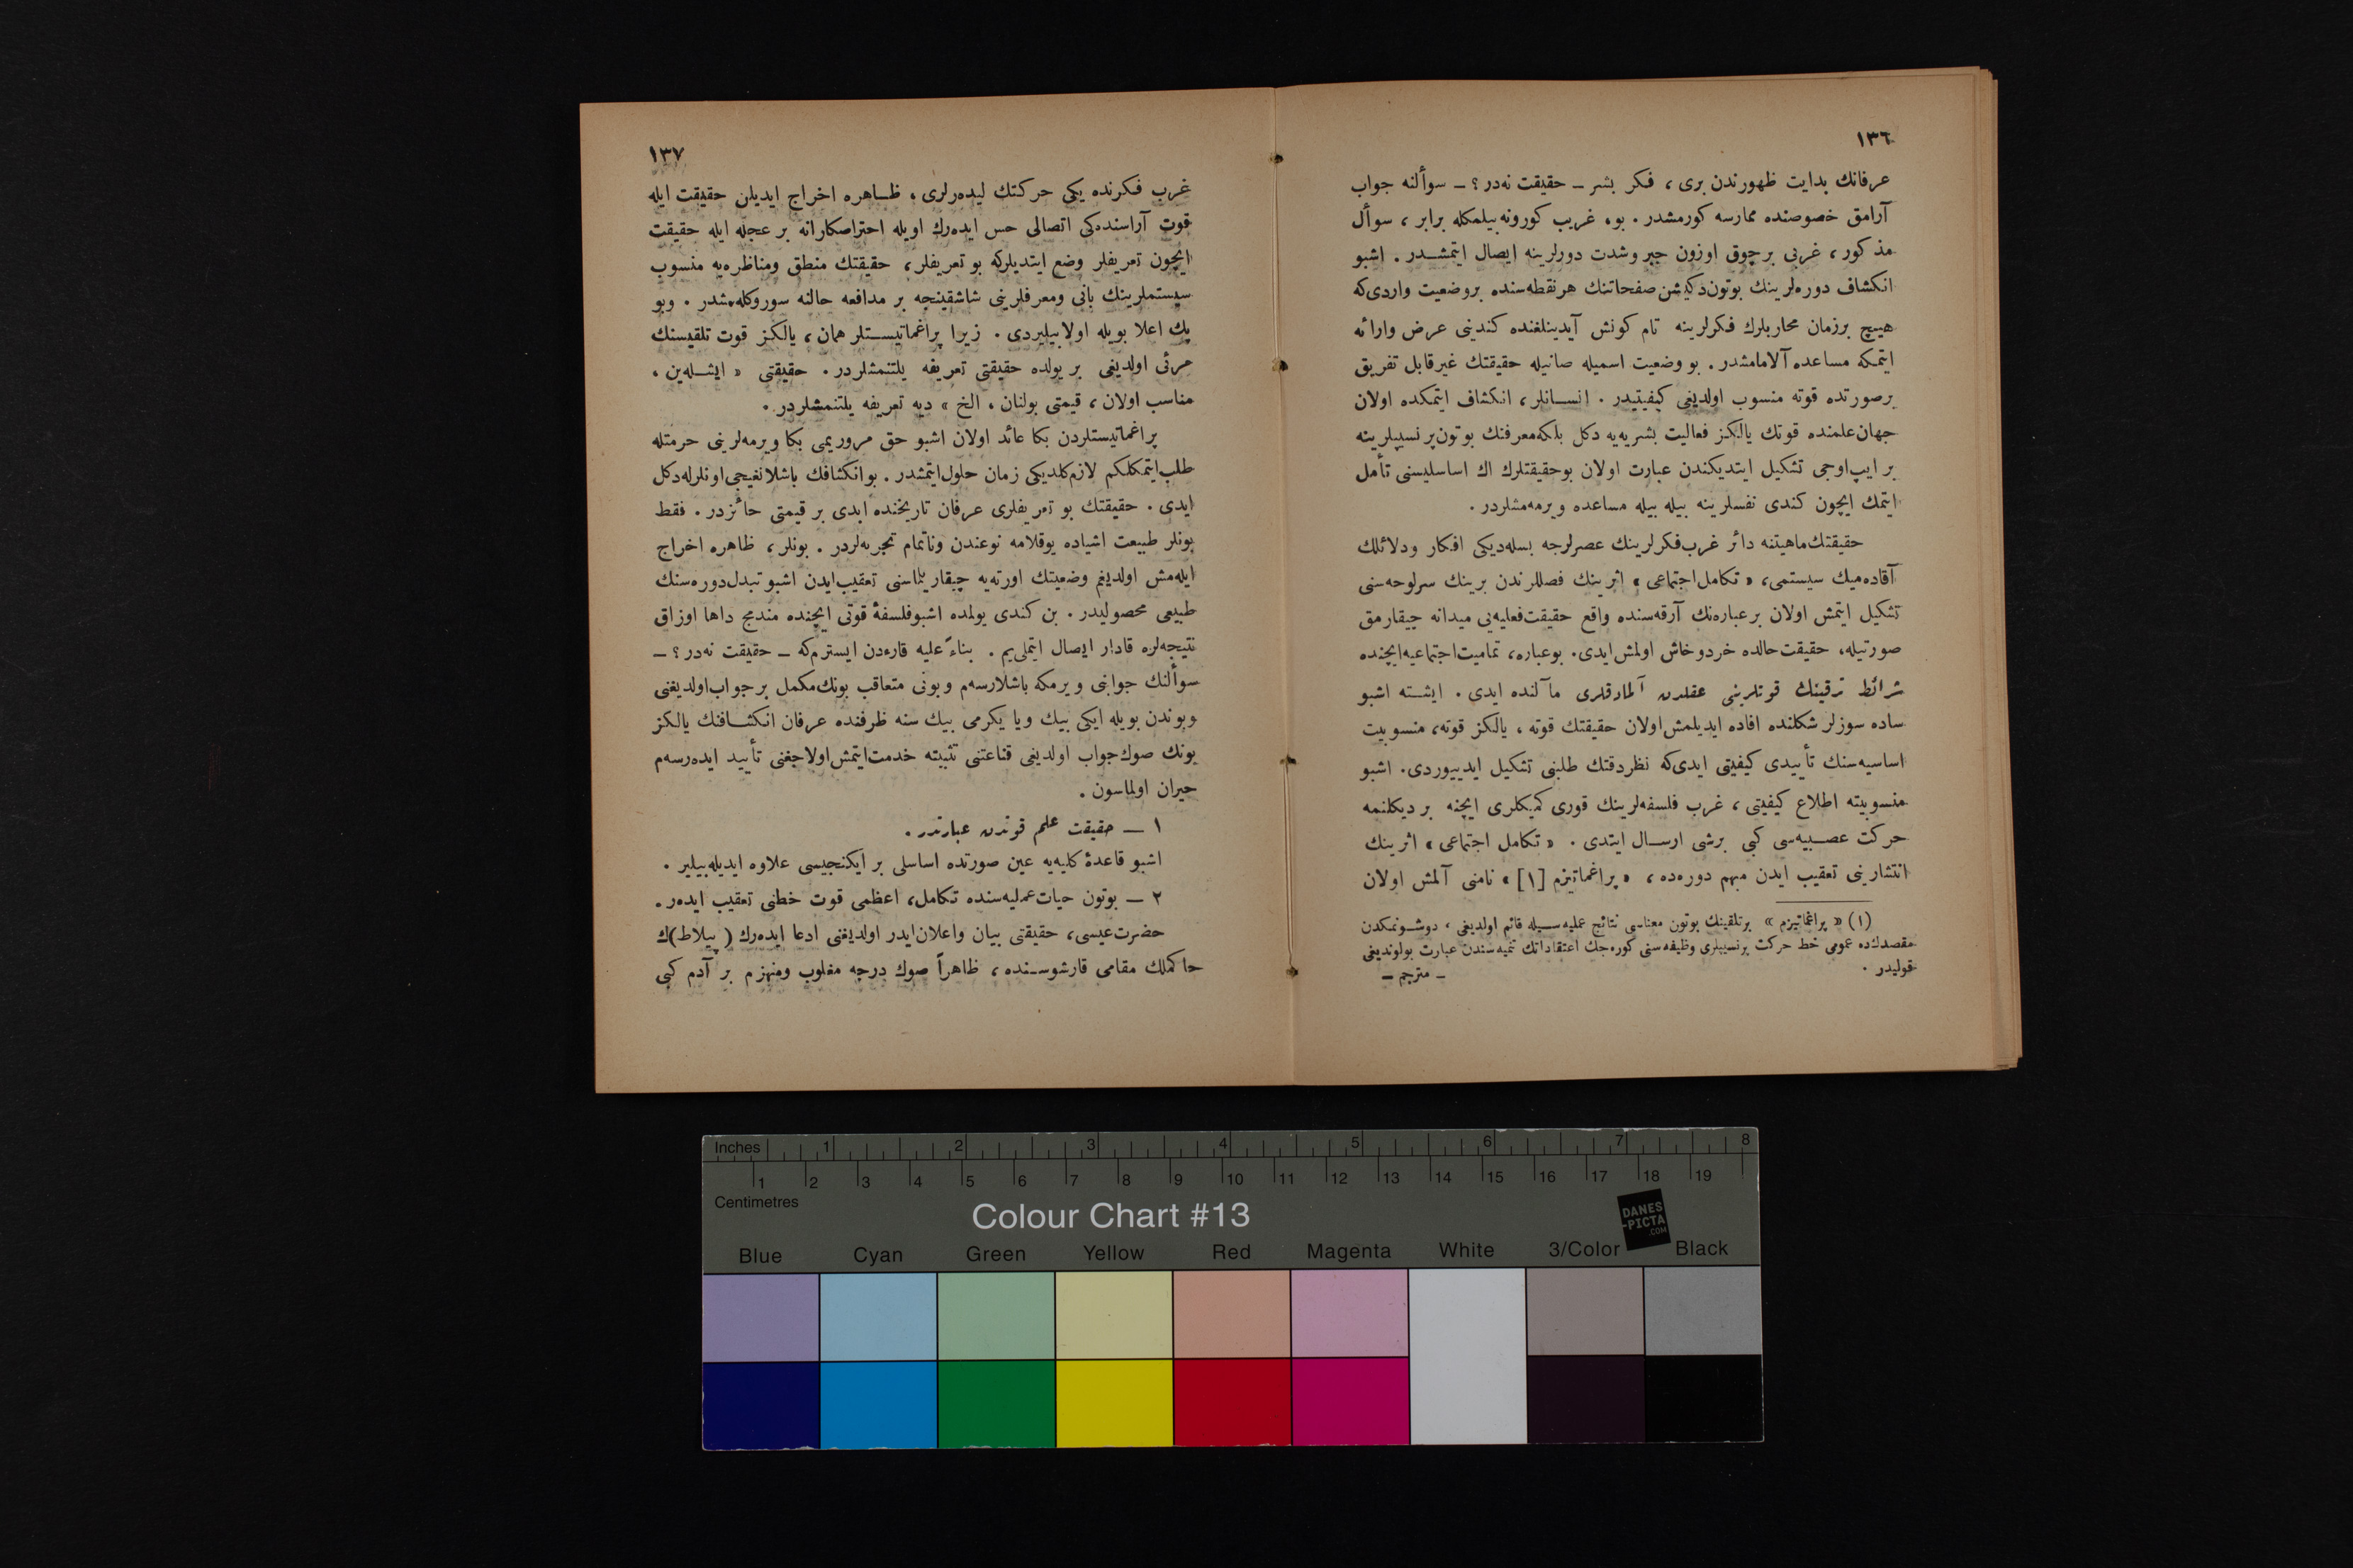 ١٣٦
عرفانك بدايت ظهورندن برى ، فكر بشر ــ حقيقت نه‌در ؟ ــ سوألنه جواب
آرامق خصوصنده ممارسه كورمشدر . بو، غريب كورونه بيلمكله برابر ، سوأل
مذكور ، غربى بر چوق اوزون جبر وشدت دورلرينه ايصال ايتمشــدر . اشبو
انكشاف دوره‌لرينك بوتون دكيشن صفحاتنك هر نقطه‌سنده بر وضعيت واردى كه
هيچ بر زمان محاربلرك فكرلرينه تام كونش آيدينلغنده كندينى عرض وارائه
ايتمكه مساعده آلامامشدر . بو وضعيت اسميله صانيله حقيقتك غير قابل تفريق
بر صورتده قوته منسوب اولديغى كيفيتيدر . انســانلر ، انكشاف ايتمكده اولان
جهان علمنده قوتك يالكز فعاليت بشريه‌يه دكل بلكه معرفتك بوتون پرنسيپلرينه
بر ايپ اوجى تشكيل ايتديكندن عبارت اولان بو حقيقتلرك اك اساسليسنى تأمل
ايتمك ايچون كندى نفسلرينه بيله بيله مساعده ويرمه‌مشلردر .
حقيقتك ماهيتنه دائر غرب فكرلرينك عصرلرجه بسله‌ديكى افكار ودلائلك
آقاده‌ميك سيستمى، « تكامل اجتماعى » اثرينك فصللرندن برينك سرلوحه‌سنى
تشكيل ايتمش اولان بر عباره‌نك آرقه‌سنده واقع حقيقت فعليه‌يى ميدانه چيقارمق
صورتيله، حقيقت حالده خرد وخاش اولمش ايدى. بو عباره، تماميت اجتماعيه ايچنده
شرائط ترقينك قوتلرينى عقلدن آلمادقلرى مآلنده ايدى . ايشــته اشبو
ساده سوزلر شكلنده افاده ايديلمش اولان حقيقتك قوته ، يالكز قوته، منسوبيت
اساسيه‌سنك تأييدى كيفيتى ايدى كه نظر دقتك طلبنى تشكيل ايدييوردى. اشبو
منسوبيته اطلاع كيفيتى ، غرب فلسفه‌لرينك قورى كميكلرى ايچنه بر ديكلنمه
حركت عصــبيه‌سى كبى برشى ارســال ايتدى . « تكامل اجتماعى » اثرينك
انتشارينى تعقيب ايدن مبهم دوره‌ده ، « پراغماتيزم [١] » نامنى آلمش اولان
(١) « پراغماتيزم » بر تلقينك بوتون معناسى نتائج عمليه‌ســيله قائم اولديغى ، دوشــونمكدن
مقصدك ده عمومى خط حركت پرنسيپلرى وظيفه‌سنى كوره‌جك اعتقاداتك تنميه‌سندن عبارت بولونديغى
قوليدر .                                                             ــ مترجم ــ
١٣٧
غرب فكرنده يكى حركتك ليده‌رلرى ، ظــاهره اخراج ايديلن حقيقت ايله
قوت آراسنده‌كى اتصالى حس ايده‌رك اويله احتراصكارانه بر عجله ايله حقيقت
ايچون تعريفلر وضع ايتديلركه بو تعريفلر ، حقيقتك منطق ومناظره‌يه منسوب
سيستملرينك بانى ومعرفلرينى شاشقينجه بر مدافعه حالنه سوروكله‌مشدر . وبو
پك اعلا بويله اولابيليردى . زيرا پراغماتيســتلر همان ، يالكز قوت تلقيسنك
مرئى اولديغى بر يولده حقيقتى تعريفه يلتنمشلردر . حقيقتى « ايشــله‌ين ،
مناسب اولان ، قيمتى بولنان ، الخ » ديه تعريفه يلتنمشلردر .
پراغماتيستلردن بكا عائد اولان اشبو حق مروريمى بكا ويرمه‌لرينى حرمتله
طلب ايتمكلكم لازم‌كلديكى زمان حلول ايتمشدر . بو انكشافك باشلانغيجى اونلرله دكل
ايدى . حقيقتك بو تعريفلرى عرفان تاريخنده ابدى بر قيمتى حائزدر . فقط
بونلر طبيعت اشياده يوقلامه نوعندن وناتمام تجربه‌لردر . بونلر ، ظاهره اخراج
ايله‌مش اولديغم وضعيتك اورته‌يه چيقاريلماسنى تعقيب ايدن اشبو تبدل دوره‌سنك
طبيعى محصوليدر . بن كندى يولمده اشبو فلسفهٔ قوتى ايچنده مندمج داها اوزاق
نتيجه‌لره قادار ايصال ايتملى‌يم . بناءً عليه قارءدن ايسترم كه ــ حقيقت نه‌در ؟ ــ
سوألنك جوابنى ويرمكه باشلارسه‌م وبونى متعاقب بونك مكمل بر جواب اولديغنى
وبوندن بويله ايكى بيك ويا يكرمى بيك سنه ظرفنده عرفان انكشــافنك يالكز
بونك صوك جواب اولديغى قناعتنى تثبيته خدمت ايتمش اولاجغنى تأييد ايده‌رسه‌م
حيران اولماسون .
١ ــ حقيقت علم قوتدن عبارتدر .
اشبو قاعدهٔ كليه‌يه عين صورتده اساسلى بر ايكنجيسى علاوه ايديله‌بيلير .
٢ ــ بوتون حيات عمليه‌سنده تكامل، اعظمى قوت خطنى تعقيب ايده‌ر .
حضرت عيسى، حقيقتى بيان واعلان ايدر اولديغنى ادعا ايده‌رك ( پيلاط)ك
حاكملك مقامى قارشوســنده ، ظاهراً صوك درجه مغلوب ومنهزم بر آدم كبى
Inches 1 2 3 4 5 6 7 8
1 2 3 4 5 6 7 8 9 10 11 12 13 14 15 16 17 18 19
Centimetres
Colour Chart #13
DANES
-PICTA
.COM
Blue Cyan Green Yellow Red Magenta White 3/Color Black